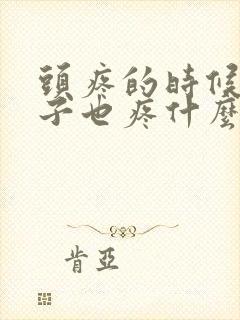 頭疼的時候
子也疼什麼
肯亞